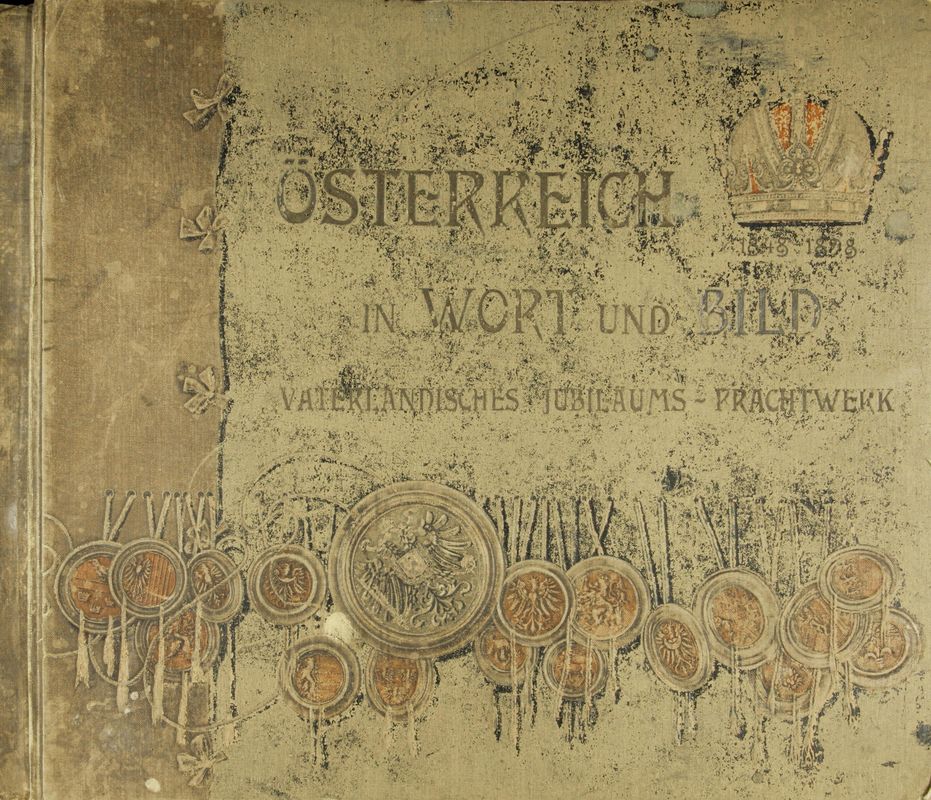 ÖSTERREICH
1848-1898
IN WORT UND BILD
VATERLÄNDISCHES JUBILÄUMS-PRACHTWERK